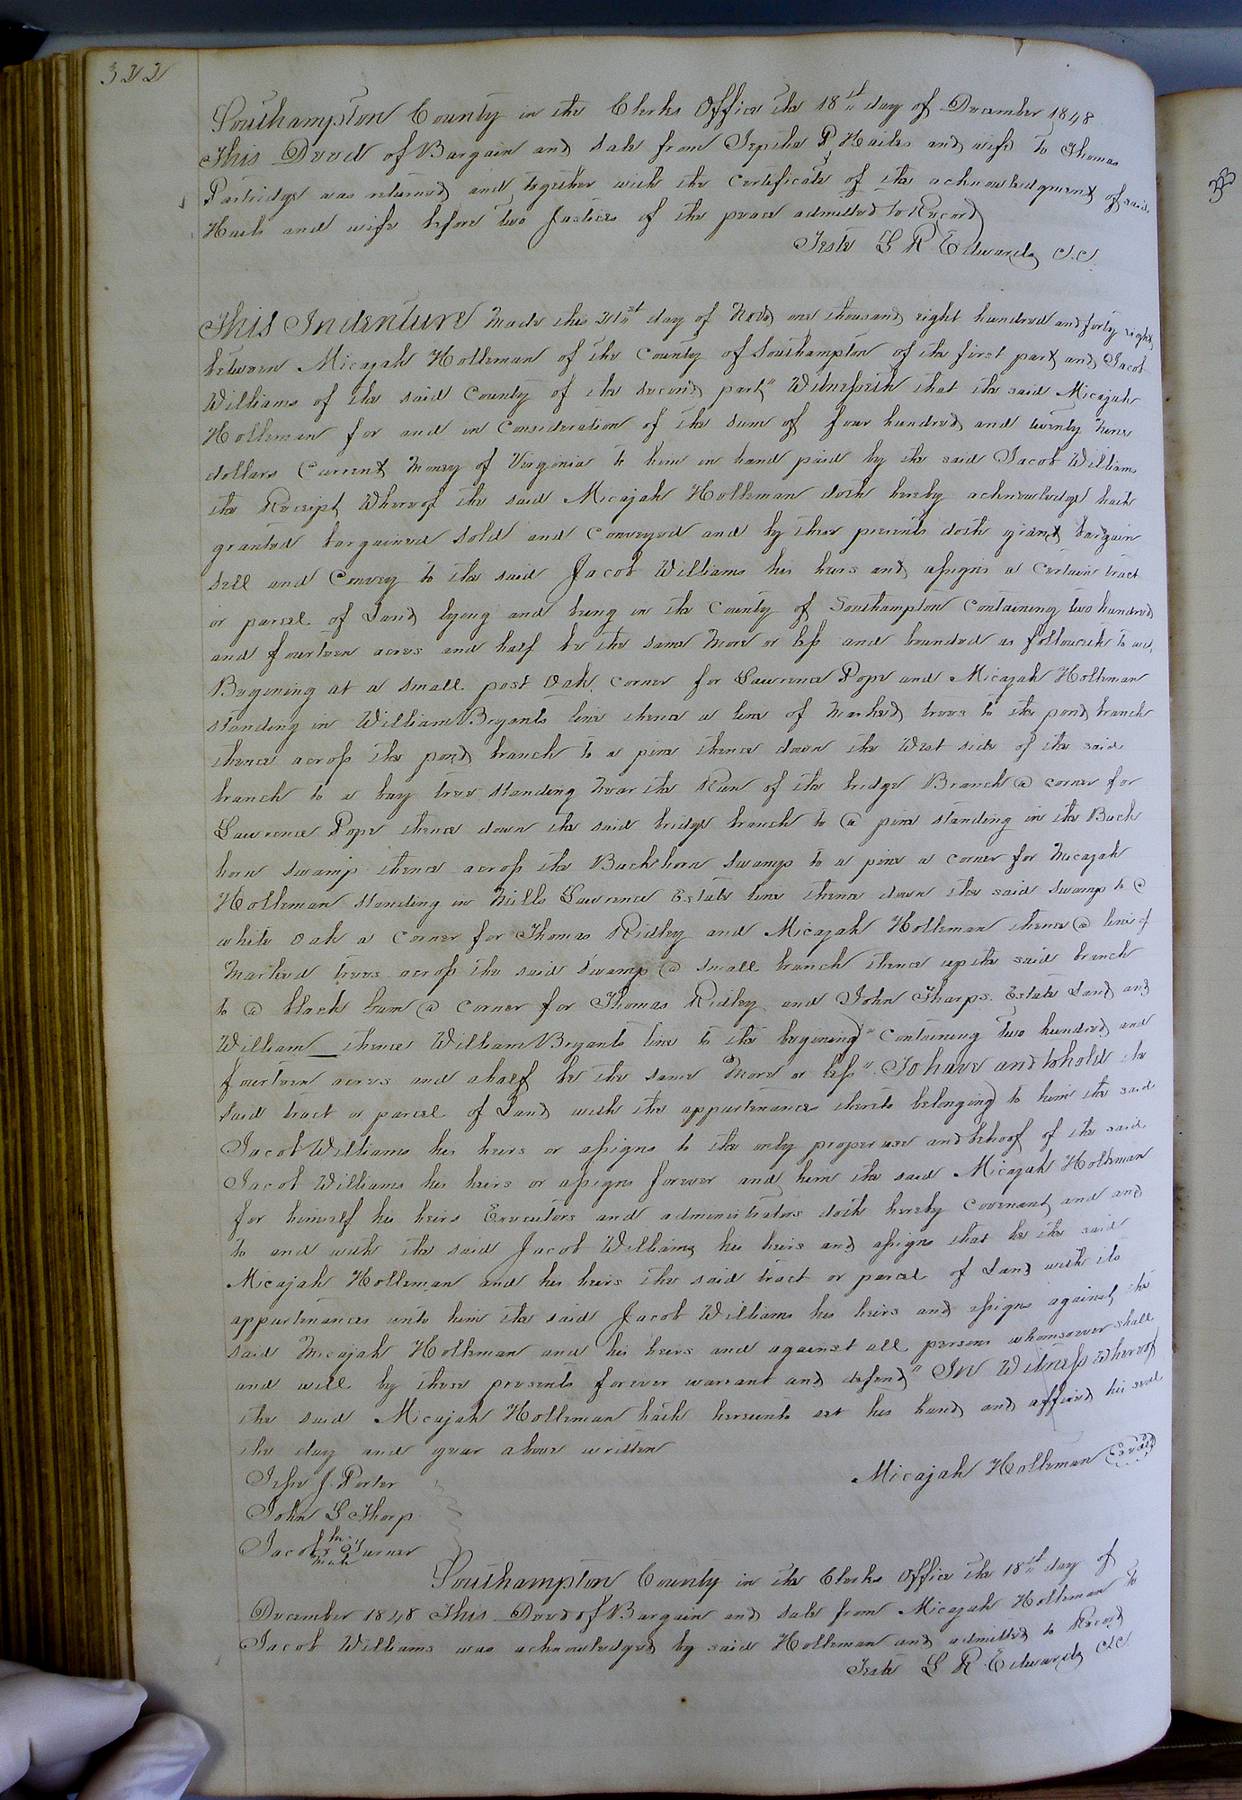 322
Southampton County in the Clerks Office the 18th day of December 1848
This Deed of Bargain and Sale from P Haile and wife to Thomas
Partridge was returned and together with the certificate of the acknowledgment of said
Haile and wife before two Justices of the peace admitted to Record
Teste L R Edwards C.C.
This Indenture Made this 21st day of Novr one thousand eight hundred and forty eight
between Micajah Holleman of the County of Southampton of the first part and Jacob
Williams of the said County of the second part" Witnesseth that the said Micajah
Holleman for and in Consideration of the sum of four hundred and twenty Nine
dollars Current Money of Virginia to him in hand paid by the said Jacob Williams
the Receipt Whereof the said Micajah Holleman doth hereby acknowledge hath
granted bargained sold and Conveyed and by these presents doth grant bargain
sell and Convey to the said Jacob Williams his heirs and assigns a Certain tract
or parcel of Land lying and being in the County of Southampton Containing two hundred
and fourteen acres and half be the same More or less and bounded as followeth to wit,
Begining at a small post Oak, corner for Lawrence Pope and Micajah Holleman
standing in William Bryants line thence a line of Marked trees to the pond branch
thence across the pond branch to a pine thence down the West side of the said
branch to a bay tree standing Near the Run of the bridge Branch @ corner for
Lawrence Pope thence down the said bridge branch to @ pine standing in the Buck
horn swamp thence across the Buckhorn Swamp to a pine a corner for Micajah
Holleman standing in Mills Lawrence Estate line thence down the said swamp to @
white Oak a Corner for Thomas Ridley and Micajah Holleman thence @ line of
Marked trees across the said Swamp @ small branch thence up the said branch
to @ black Gum @ corner for Thomas Ridley and John Tharps. Estate Land and
William __ thence William Bryants line to the begining" Containing two hundred and
fourteen acres and a half be the same More or less" To have and to hold the
said tract or parcel of Land with the appurtenances thereto belonging to him the said
Jacob Williams his heirs or assigns to the only proper use and behoof of the said
Jacob Williams his heirs or assigns forever and him the said Micajah Holleman
for himself his heirs Executors and administrators doth hereby Covenant and and
to and with the said Jacob Williams his heirs and assigns that he the said
Micajah Holleman and his heirs the said tract or parcel of Land with its
appurtenances unto him the said Jacob Williams his heirs and assigns against the
said Micajah Holleman and his heirs and against all persons whomsoever shall
and will by these presents forever warrant and defend" In Witness Whereof
the said Micajah Holleman hath hereunto set his hand and affixed his seal
the day and year above written
Micajah Holleman Seal
Jesse J. Porter
John L Tharp
his
Jacob x Turner
mark
Southampton County in the Clerks Office the 18th day of
December 1848 This Deed of Bargain and Sale from Micajah Holleman to
Jacob Williams was acknowledged by said Holleman and admitted to Record
Teste L R Edwards C.C.